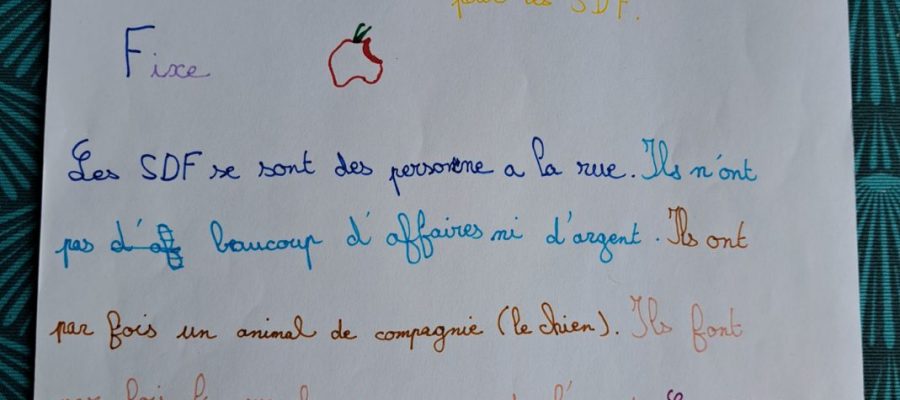 pour les SDF.
Fixe
Les SDF se sont des personne a la rue. Ils n'ont
pas d'aff beaucoup d'affaires ni d'argent. Ils ont
par fois un animal de compagnie (le chien). Ils font
par fois